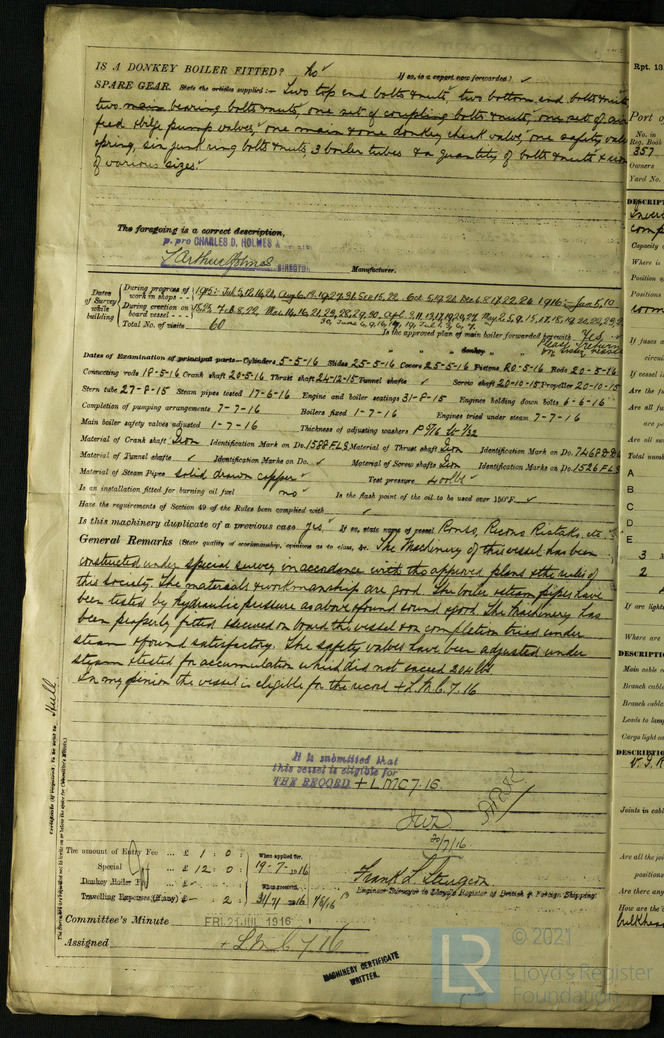 IS A DONKEY BOILER FITTED? No If so, is a report now forwarded? ✓
SPARE GEAR. State the articles supplied:— Two top end bolts & nuts, two bottom end bolts & nuts
two main bearing bolts & nuts, one set of coupling bolts & nuts, one set of air
feed & bilge pump valves, one main & one donkey check valve, one safety valve
spring, six junk ring bolts & nuts, 3 boiler tubes & a quantity of bolts & nuts & iron
of various sizes
The foregoing is a correct description,
p. pro CHARLES D. HOLMES &
Arthur Holmes DIRECTOR Manufacturer.
Dates of Survey while building
During progress of work in shops 1915:- Jul 5, 12, 16, 21, Aug 6, 13, 19, 27, 31, Sep 15, 22, Oct 5, 19, 21, Dec 6, 8, 17, 22, 26 1916:- Jan 5, 10
During erection on board vessel Feb 8, 22, Mar 14, 16, 21, 23, 28, 29, 30, Apl 2, 11, 13, 17, 19, 26, 27, May 2, 5, 9, 15, 17, 18, 19, 20, 22, 23
Total No. of visits 60
Is the approved plan of main boiler forwarded herewith Yes
Dates of Examination of principal parts—Cylinders 5-5-16 Slides 25-5-16 Covers 25-5-16 Pistons 20-5-16 Rods 20-5-16
Connecting rods 18-5-16 Crank shaft 20-5-16 Thrust shaft 24-12-15 Tunnel shafts ✓ Screw shaft 20-10-15 Propeller 20-10-15
Stern tube 27-8-15 Steam pipes tested 17-6-16 Engine and boiler seatings 31-8-15 Engines holding down bolts 6-6-16
Completion of pumping arrangements 7-7-16 Boilers fixed 1-7-16 Engines tried under steam 7-7-16
Main boiler safety valves adjusted 1-7-16 Thickness of adjusting washers P 5/16 St 9/32
Material of Crank shaft Iron Identification Mark on Do. 1588 FLS Material of Thrust shaft Iron Identification Mark on Do. 7468
Material of Tunnel shafts ✓ Identification Marks on Do. ✓ Material of Screw shafts Iron Identification Marks on Do. 1526 FLS
Material of Steam Pipes solid drawn copper Test pressure 400 lbs
Is an installation fitted for burning oil fuel no Is the flash point of the oil to be used over 150°F. ✓
Have the requirements of Section 49 of the Rules been complied with ✓
Is this machinery duplicate of a previous case yes If so, state name of vessel Ronso, Ristako, etc
General Remarks (State quality of workmanship, opinions as to class, &c. The Machinery of this vessel has been
constructed under special survey in accordance with the approved plans & the rules of
this society. The materials & workmanship are good. The boiler & steam pipes have
been tested by hydraulic pressure as above & found sound & good. The machinery has
been properly fitted & secured on board the vessel & on completion tried under
steam & found satisfactory. The safety valves have been adjusted under
steam & tested for accumulation which did not exceed 204 lbs.
In my opinion the vessel is eligible for the record + L.M.C. 7.16
It is submitted that
this vessel is eligible for
THE RECORD + LMC 7.16.
20/7/16
Hull
Certificate (if required) to be sent to
The amount of Entry Fee ... £ 1 : 0 : When applied for,
Special ... £ 12 : 0 : 19-7-1916
Donkey Boiler Fee ... £ - : When received,
Travelling Expenses (if any) £ - : 2 : 31/7/1916
Frank L. Sturgeon
Engineer Surveyor to Lloyd's Register of British & Foreign Shipping.
Committee's Minute FRI. 21 JUL 1916
Assigned + L.M.C 7.16
MACHINERY CERTIFICATE
WRITTEN.
LR
© 2021
Lloyd's Register
Foundation
Rpt. 13
Port of
No. in
Reg. Book
357
Owners
Yard No.
DESCRIPT
Capacity
Where is
Position of
Positions
If fuses
circui
If vessel is
Are the fu
Are all fu
are pe
Are all su
Total numbe
A
B
C
D
E
3
2
If are light
Where are
DESCRIPTI
Main cable
Branch cable
Branch cable
Leads to lamp
Cargo light ca
DESCRIPTIO
Joints in cabl
Are all the joi
positions
Are there any
How are the
bulkhea